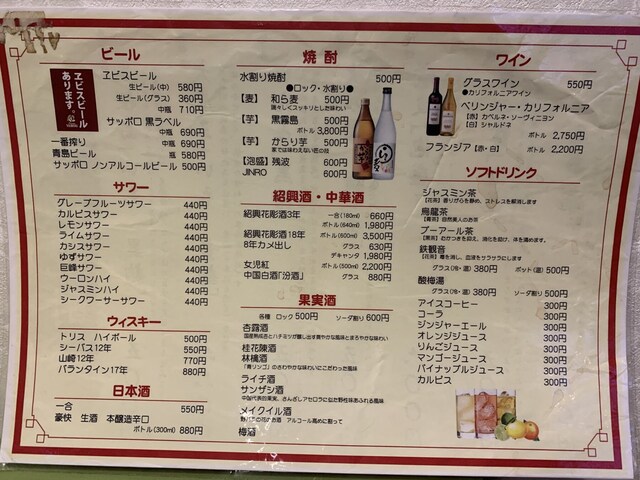 ビール
ヱビスビール
あります。
ヱビスビール
生ビール(中) 580円
生ビール(グラス) 360円
中瓶 710円
サッポロ 黒ラベル
中瓶 690円
一番搾り 中瓶 690円
青島ビール 瓶 580円
サッポロ ノンアルコールビール 500円
サワー
グレープフルーツサワー 440円
カルピスサワー 440円
レモンサワー 440円
ライムサワー 440円
カシスサワー 440円
ゆずサワー 440円
巨峰サワー 440円
ウーロンハイ 440円
ジャスミンハイ 440円
シークワーサーサワー 440円
ウィスキー
トリス ハイボール 500円
シーバス12年 550円
山崎12年 770円
バランタイン17年 880円
日本酒
一合 550円
豪快 生酒 本醸造辛口
ボトル(300ml) 880円
焼酎
水割り焼酎 500円
●ロック・水割り●
【麦】 和ら麦 500円
瑞々しくスッキリとした味わい
【芋】 黒霧島 500円
ボトル 3,800円
【芋】 からり芋 500円
【泡盛】 残波 500円
JINRO 500円
紹興酒・中華酒
紹興花彫酒3年 一合(180ml) 660円
ボトル(640ml) 1,980円
紹興花彫酒18年 ボトル(600ml) 3,500円
8年カメ出し グラス 630円
デキャンタ 1,980円
女児紅 ボトル(500ml) 2,200円
中国白酒「汾酒」 グラス 880円
果実酒
各種 ロック 500円 ソーダ割 600円
杏露酒
国産熟成杏とハチミツが醸し出す爽やかな風味とまろやかな味わい
桂花陳酒
林檎酒
「青リンゴ」のさわやかな味わいにこだわった風味
ライチ酒
サンザシ酒
中国代表の果実、さんざしアセロラに似た野性味あふれる風味
メイクイル酒
野バラの花のお酒 アルコール高めに割って
梅酒
ワイン
グラスワイン 550円
●カリフォルニアワイン
ベリンジャー・カリフォルニア
【赤】カベルネ・ソーヴィニヨン
【白】シャルドネ
ボトル 2,750円
フランジア【赤・白】 ボトル 2,200円
ソフトドリンク
ジャスミン茶
【花茶】香りが心を静め、ストレスを解消します
烏龍茶
【青茶】自然美人のお茶
プーアール茶
【黒茶】むかつきを抑え、消化を助け、体を温めます。
鉄観音
【花茶】毒を消し、血液をサラサラにします
グラス(冷・温) 380円 ポット(温) 500円
酸梅湯
グラス(冷・温) 380円 ソーダ割 500円
アイスコーヒー 300円
コーラ 300円
ジンジャーエール 300円
オレンジジュース 300円
りんごジュース 300円
マンゴージュース 300円
パイナップルジュース 300円
カルピス 300円